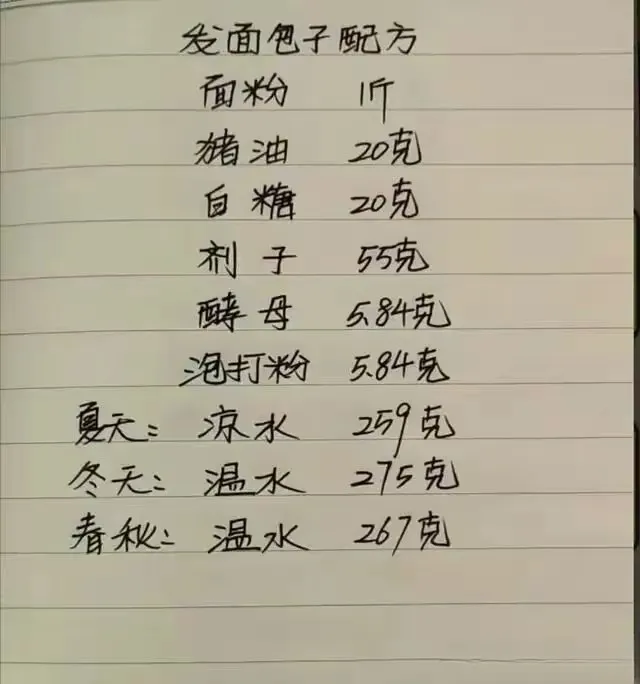 发面包子配方
面粉 1斤
猪油 20克
白糖 20克
剂子 55克
酵母 5.84克
泡打粉 5.84克
夏天: 凉水 259克
冬天: 温水 275克
春秋: 温水 267克